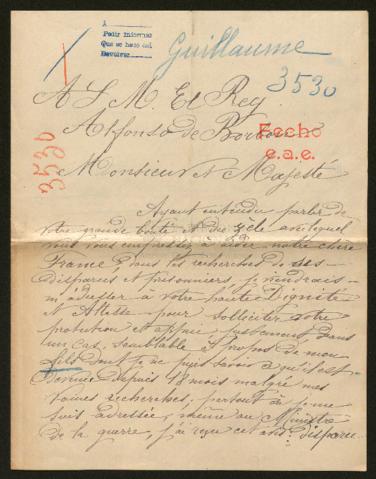 A
Pedir informes
Que se haga así
Devolver
Guillaume
3530
3530
A S. M. El Rey
Alfonso de Borbon
Fecho
e.a.e.
Monsieur et Majesté
Ayant entendu parler de
votre grande bonté et du zèle avec lequel
vous vous empressez à notre chère
France dans les recherches de ses
disparus et prisonniers, je viendrais
m'adresser à votre haute Dignité
et Altesse pour solliciter votre
protection et appui justement dans
un cas semblable à propos de mon
fils dont je ne puis savoir ce qu'il est
devenu depuis 18 mois malgré mes
vaines recherches, partout où je me
suis adressée, même au Ministre
de la guerre, j'ai reçu cet avis: disparu